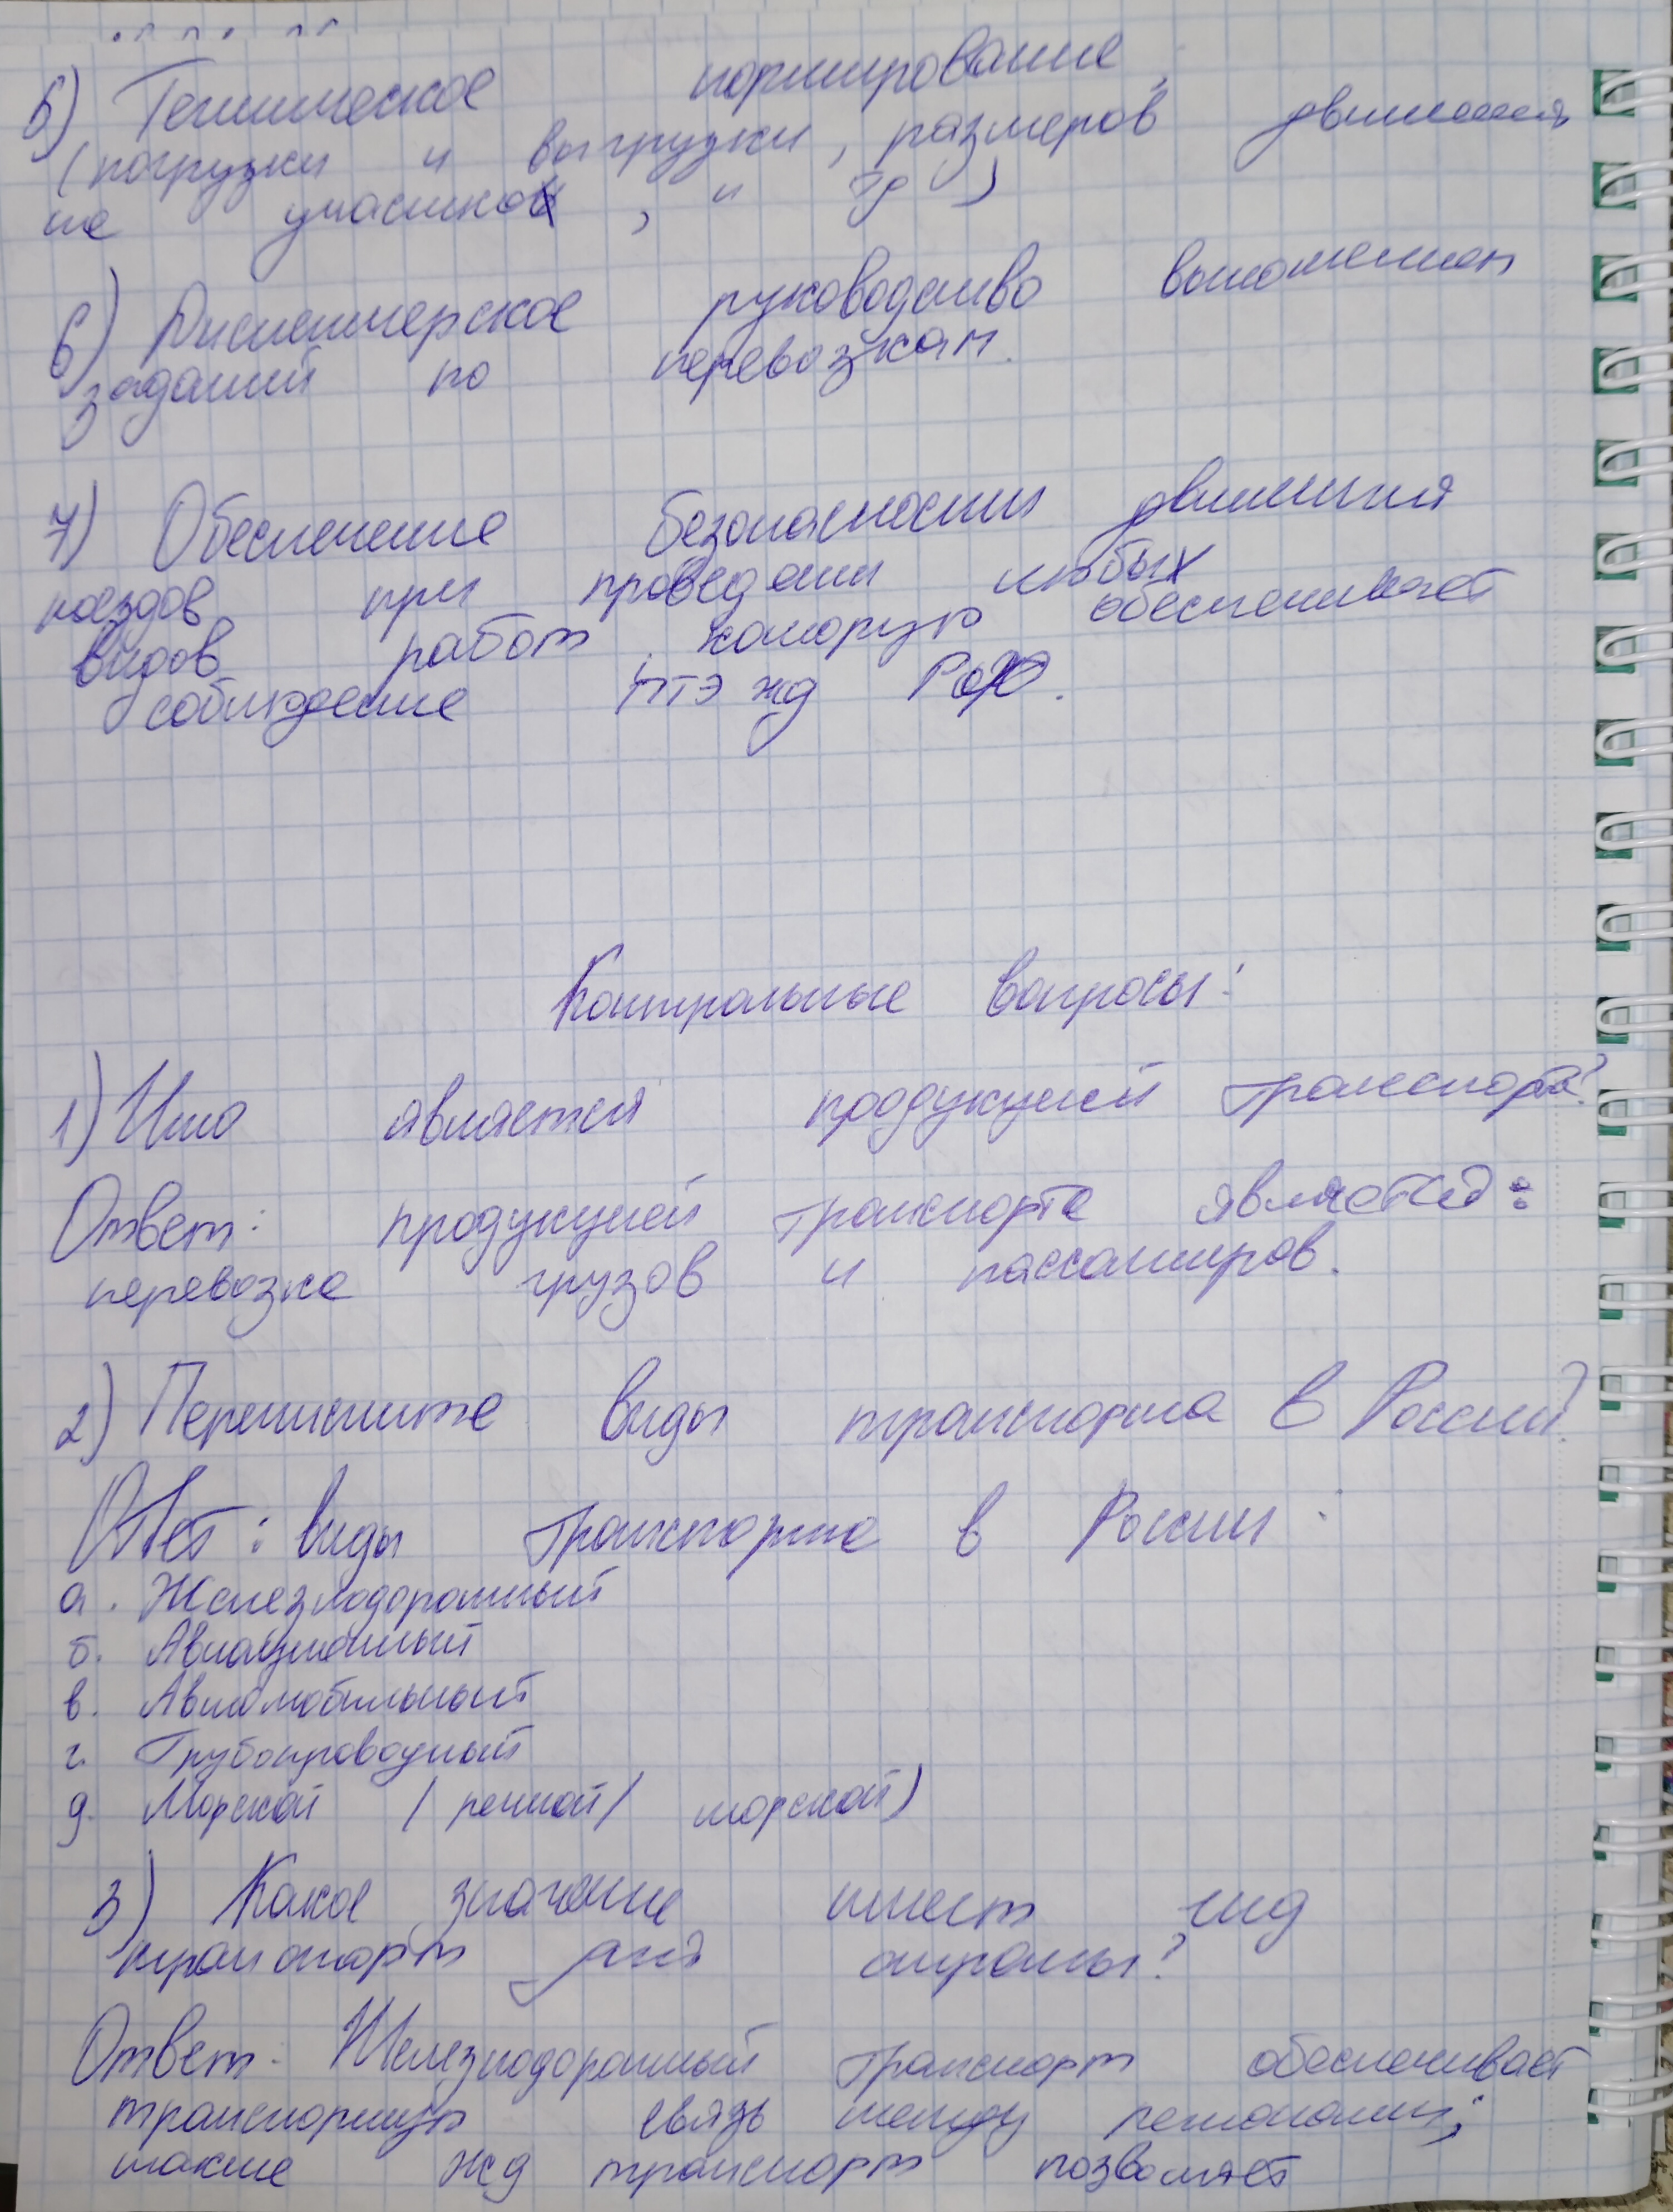 5) Техническое нормирование
(погрузки и выгрузки, размеров движения
не участков, и тд)
6) Диспетчерское руководство выполнением
заданий по перевозкам.
7) Обеспечение безопасности движения
поездов при проведении любых
видов работ, которую обеспечивает
соблюдение ПТЭ жд РФ.
Контрольные вопросы:
1) Что является продукцией транспорта?
Ответ: продукцией транспорта является:
перевозка грузов и пассажиров.
2) Перечислите виды транспорта в России?
Ответ: виды транспорта в России:
а. Железнодорожный
б.
в. Автомобильный
г. Трубопроводный
д. Морской (речной/морской)
3) Какое значение имеет жд
транспорт для страны?
Ответ: Железнодорожный транспорт обеспечивает
транспортную связь между регионами;
также жд транспорт позволяет